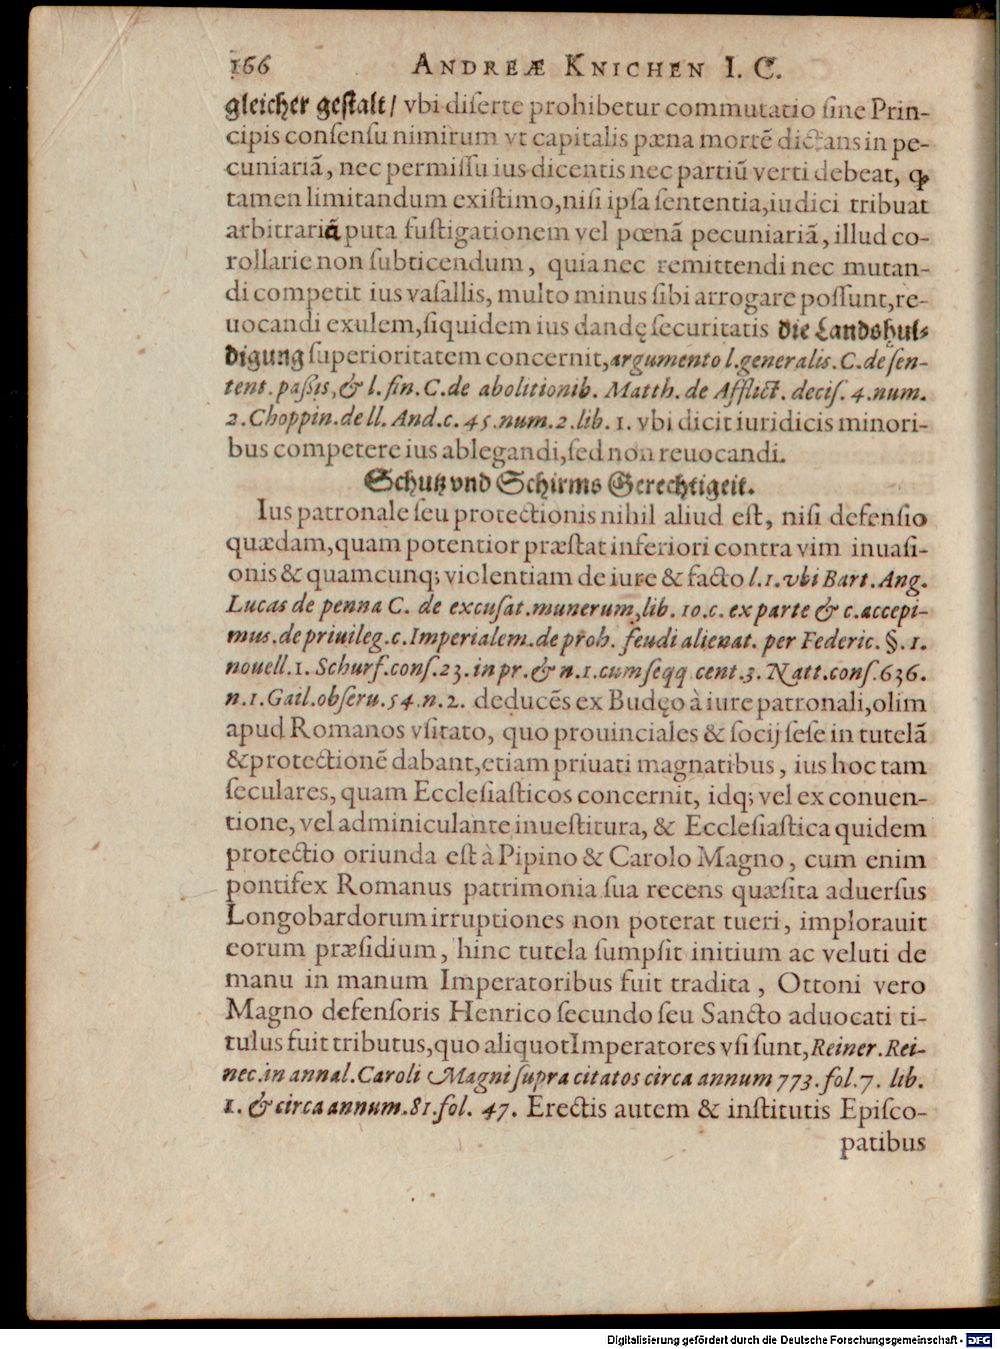 166 ANDREÆ KNICHEN I. C.
gleicher gestalt/ vbi diſerte prohibetur commutatio ſine Prin-
cipis conſenſu nimirum vt capitalis pæna mortẽ dictans in pe-
cuniariã, nec permiſſu ius dicentis nec partiũ verti debeat, ꝙ
tamen limitandum exiſtimo,niſi ipſa ſententia,iudici tribuat
arbitrariã puta fuſtigationem vel pœnã pecuniariã, illud co-
rollarie non ſubticendum, quia nec remittendi nec mutan-
di competit ius vaſallis, multo minus ſibi arrogare poſſunt,re-
uocandi exulem,ſiquidem ius dandę ſecuritatis die Landshul-
digung ſuperioritatem concernit,argumento l.generalis.C.de ſen-
tent.paßis,& l.fin.C.de abolitionib. Matth. de Afflict. deciſ. 4.num.
2.Choppin.de ll. And.c. 45.num.2.lib. 1. vbi dicit iuridicis minori-
bus competere ius ablegandi,ſed non reuocandi.
Schutz vnd Schirms Gerechtigkeit.
Ius patronale ſeu protectionis nihil aliud eſt, niſi defenſio
quædam,quam potentior præſtat inferiori contra vim inuaſi-
onis & quamcunq; violentiam de iure & facto l.1.vbi Bart.Ang.
Lucas de penna C. de excuſat.munerum,lib. 10.c. ex parte & c.accepi-
mus.de priuileg.c.Imperialem.de proh. feudi alienat. per Federic. §.1.
nouell.1. Schurf.conſ.23.in pr.& n.1.cum ſeqq cent.3.Natt.conſ.636.
n.1.Gail.obſeru.54.n.2. deducẽs ex Budęo à iure patronali,olim
apud Romanos vſitato, quo prouinciales & ſocij ſeſe in tutelã
& protectionẽ dabant,etiam priuati magnatibus, ius hoc tam
ſeculares, quam Eccleſiaſticos concernit, idq; vel ex conuen-
tione, vel adminiculante inueſtitura, & Eccleſiaſtica quidem
protectio oriunda eſt à Pipino & Carolo Magno, cum enim
pontifex Romanus patrimonia ſua recens quæſita aduerſus
Longobardorum irruptiones non poterat tueri, implorauit
eorum præſidium, hinc tutela ſumpſit initium ac veluti de
manu in manum Imperatoribus fuit tradita, Ottoni vero
Magno defenſoris Henrico ſecundo ſeu Sancto aduocati ti-
tulus fuit tributus,quo aliquot Imperatores vſi ſunt,Reiner.Rei-
nec.in annal.Caroli Magni ſupra citatos circa annum 773.fol.7. lib.
1. & circa annum.81.fol. 47. Erectis autem & inſtitutis Epiſco-
patibus
Digitalisierung gefördert durch die Deutsche Forschungsgemeinschaft - DFG